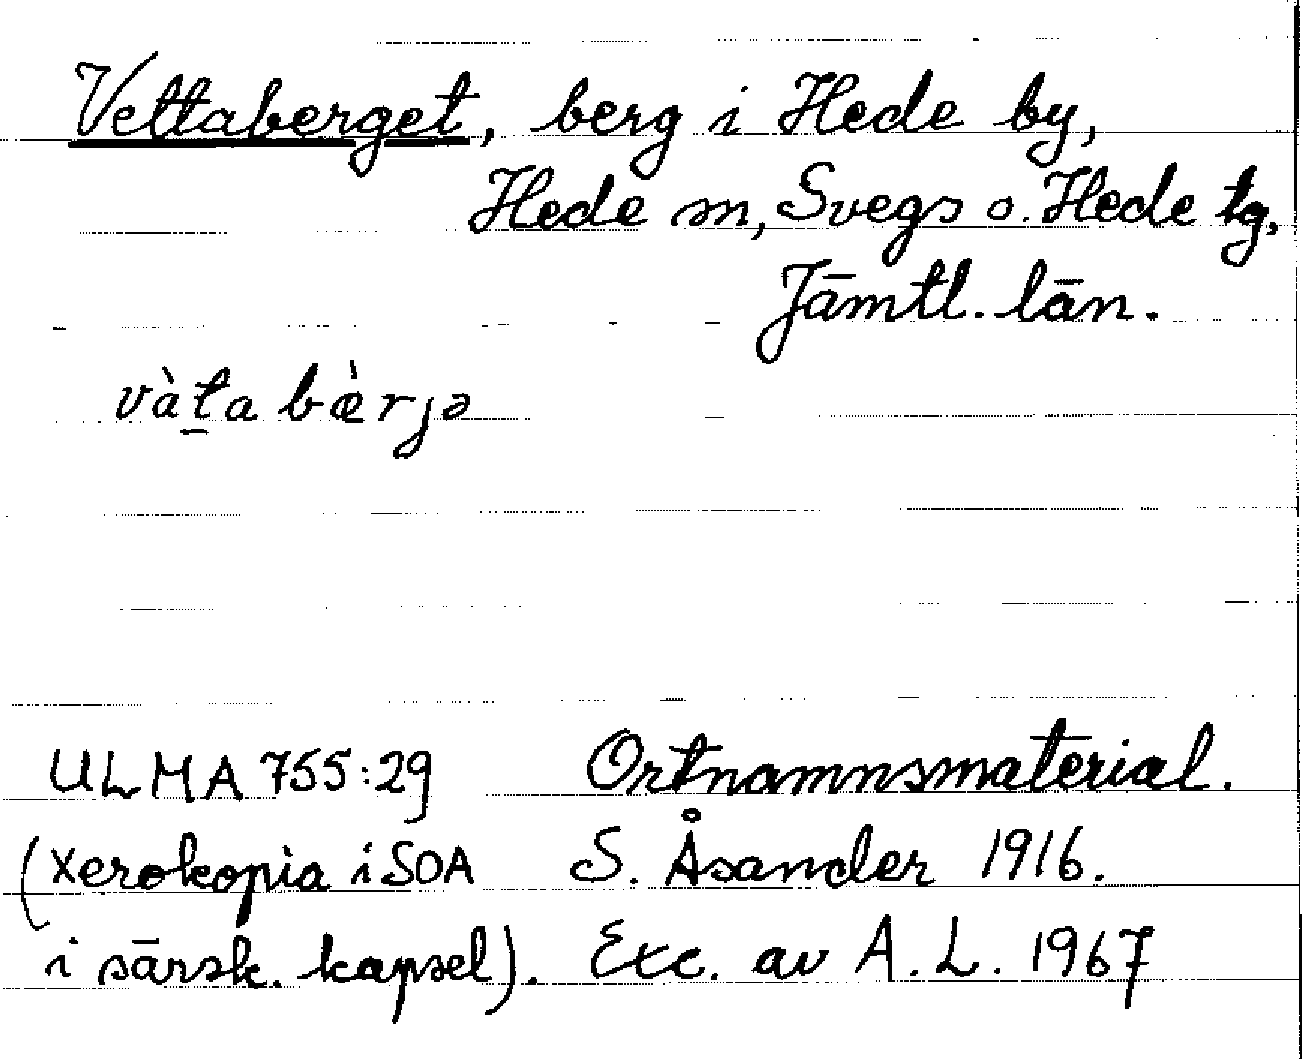 Vettaberget, berg i Hede by,
Hede sn, Svegs o. Hede tg,
Jämtl. län.
vàt̲a bæ̀rjə
ULMA 755:29 Ortnamnsmaterial.
(Xerokopia i SOA S. Åsander 1916.
i särsk. kapsel). Exc. av A.L. 1967